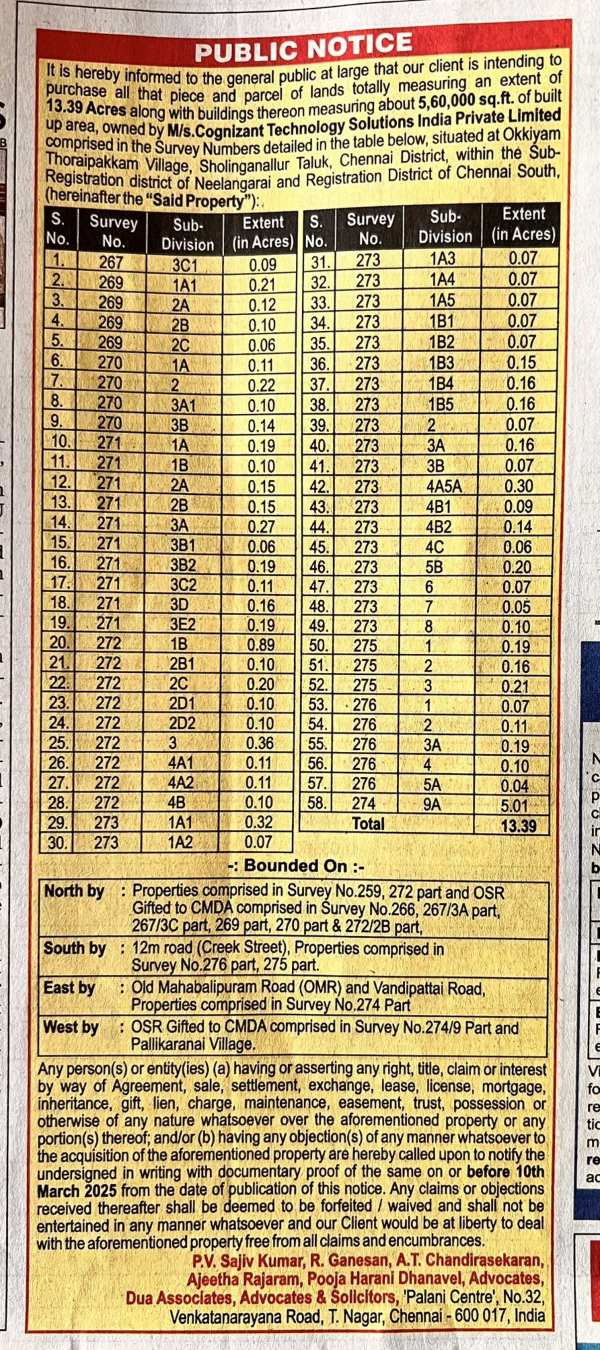 PUBLIC NOTICE
It is hereby informed to the general public at large that our client is intending to
purchase all that piece and parcel of lands totally measuring an extent of
13.39 Acres along with buildings thereon measuring about 5,60,000 sq.ft. of built
up area, owned by M/s.Cognizant Technology Solutions India Private Limited
comprised in the Survey Numbers detailed in the table below, situated at Okkiyam
Thoraipakkam Village, Sholinganallur Taluk, Chennai District, within the Sub-
Registration district of Neelangarai and Registration District of Chennai South,
(hereinafter the “Said Property”):.
S. No. Survey No. Sub-Division Extent (in Acres)
1. 267 3C1 0.09
2. 269 1A1 0.21
3. 269 2A 0.12
4. 269 2B 0.10
5. 269 2C 0.06
6. 270 1A 0.11
7. 270 2 0.22
8. 270 3A1 0.10
9. 270 3B 0.14
10. 271 1A 0.19
11. 271 1B 0.10
12. 271 2A 0.15
13. 271 2B 0.15
14. 271 3A 0.27
15. 271 3B1 0.06
16. 271 3B2 0.19
17. 271 3C2 0.11
18. 271 3D 0.16
19. 271 3E2 0.19
20. 272 1B 0.89
21. 272 2B1 0.10
22. 272 2C 0.20
23. 272 2D1 0.10
24. 272 2D2 0.10
25. 272 3 0.36
26. 272 4A1 0.11
27. 272 4A2 0.11
28. 272 4B 0.10
29. 273 1A1 0.32
30. 273 1A2 0.07
S. No. Survey No. Sub-Division Extent (in Acres)
31. 273 1A3 0.07
32. 273 1A4 0.07
33. 273 1A5 0.07
34. 273 1B1 0.07
35. 273 1B2 0.07
36. 273 1B3 0.15
37. 273 1B4 0.16
38. 273 1B5 0.16
39. 273 2 0.07
40. 273 3A 0.16
41. 273 3B 0.07
42. 273 4A5A 0.30
43. 273 4B1 0.09
44. 273 4B2 0.14
45. 273 4C 0.06
46. 273 5B 0.20
47. 273 6 0.07
48. 273 7 0.05
49. 273 8 0.10
50. 275 1 0.19
51. 275 2 0.16
52. 275 3 0.21
53. 276 1 0.07
54. 276 2 0.11
55. 276 3A 0.19
56. 276 4 0.10
57. 276 5A 0.04
58. 274 9A 5.01
Total 13.39
-: Bounded On :-
North by : Properties comprised in Survey No.259, 272 part and OSR
Gifted to CMDA comprised in Survey No.266, 267/3A part,
267/3C part, 269 part, 270 part & 272/2B part,
South by : 12m road (Creek Street), Properties comprised in
Survey No.276 part, 275 part.
East by : Old Mahabalipuram Road (OMR) and Vandipattai Road,
Properties comprised in Survey No.274 Part
West by : OSR Gifted to CMDA comprised in Survey No.274/9 Part and
Pallikaranai Village.
Any person(s) or entity(ies) (a) having or asserting any right, title, claim or interest
by way of Agreement, sale, settlement, exchange, lease, license, mortgage,
inheritance, gift, lien, charge, maintenance, easement, trust, possession or
otherwise of any nature whatsoever over the aforementioned property or any
portion(s) thereof; and/or (b) having any objection(s) of any manner whatsoever to
the acquisition of the aforementioned property are hereby called upon to notify the
undersigned in writing with documentary proof of the same on or before 10th
March 2025 from the date of publication of this notice. Any claims or objections
received thereafter shall be deemed to be forfeited / waived and shall not be
entertained in any manner whatsoever and our Client would be at liberty to deal
with the aforementioned property free from all claims and encumbrances.
P.V. Sajiv Kumar, R. Ganesan, A.T. Chandirasekaran,
Ajeetha Rajaram, Pooja Harani Dhanavel, Advocates,
Dua Associates, Advocates & Solicitors, 'Palani Centre', No.32,
Venkatanarayana Road, T. Nagar, Chennai - 600 017, India